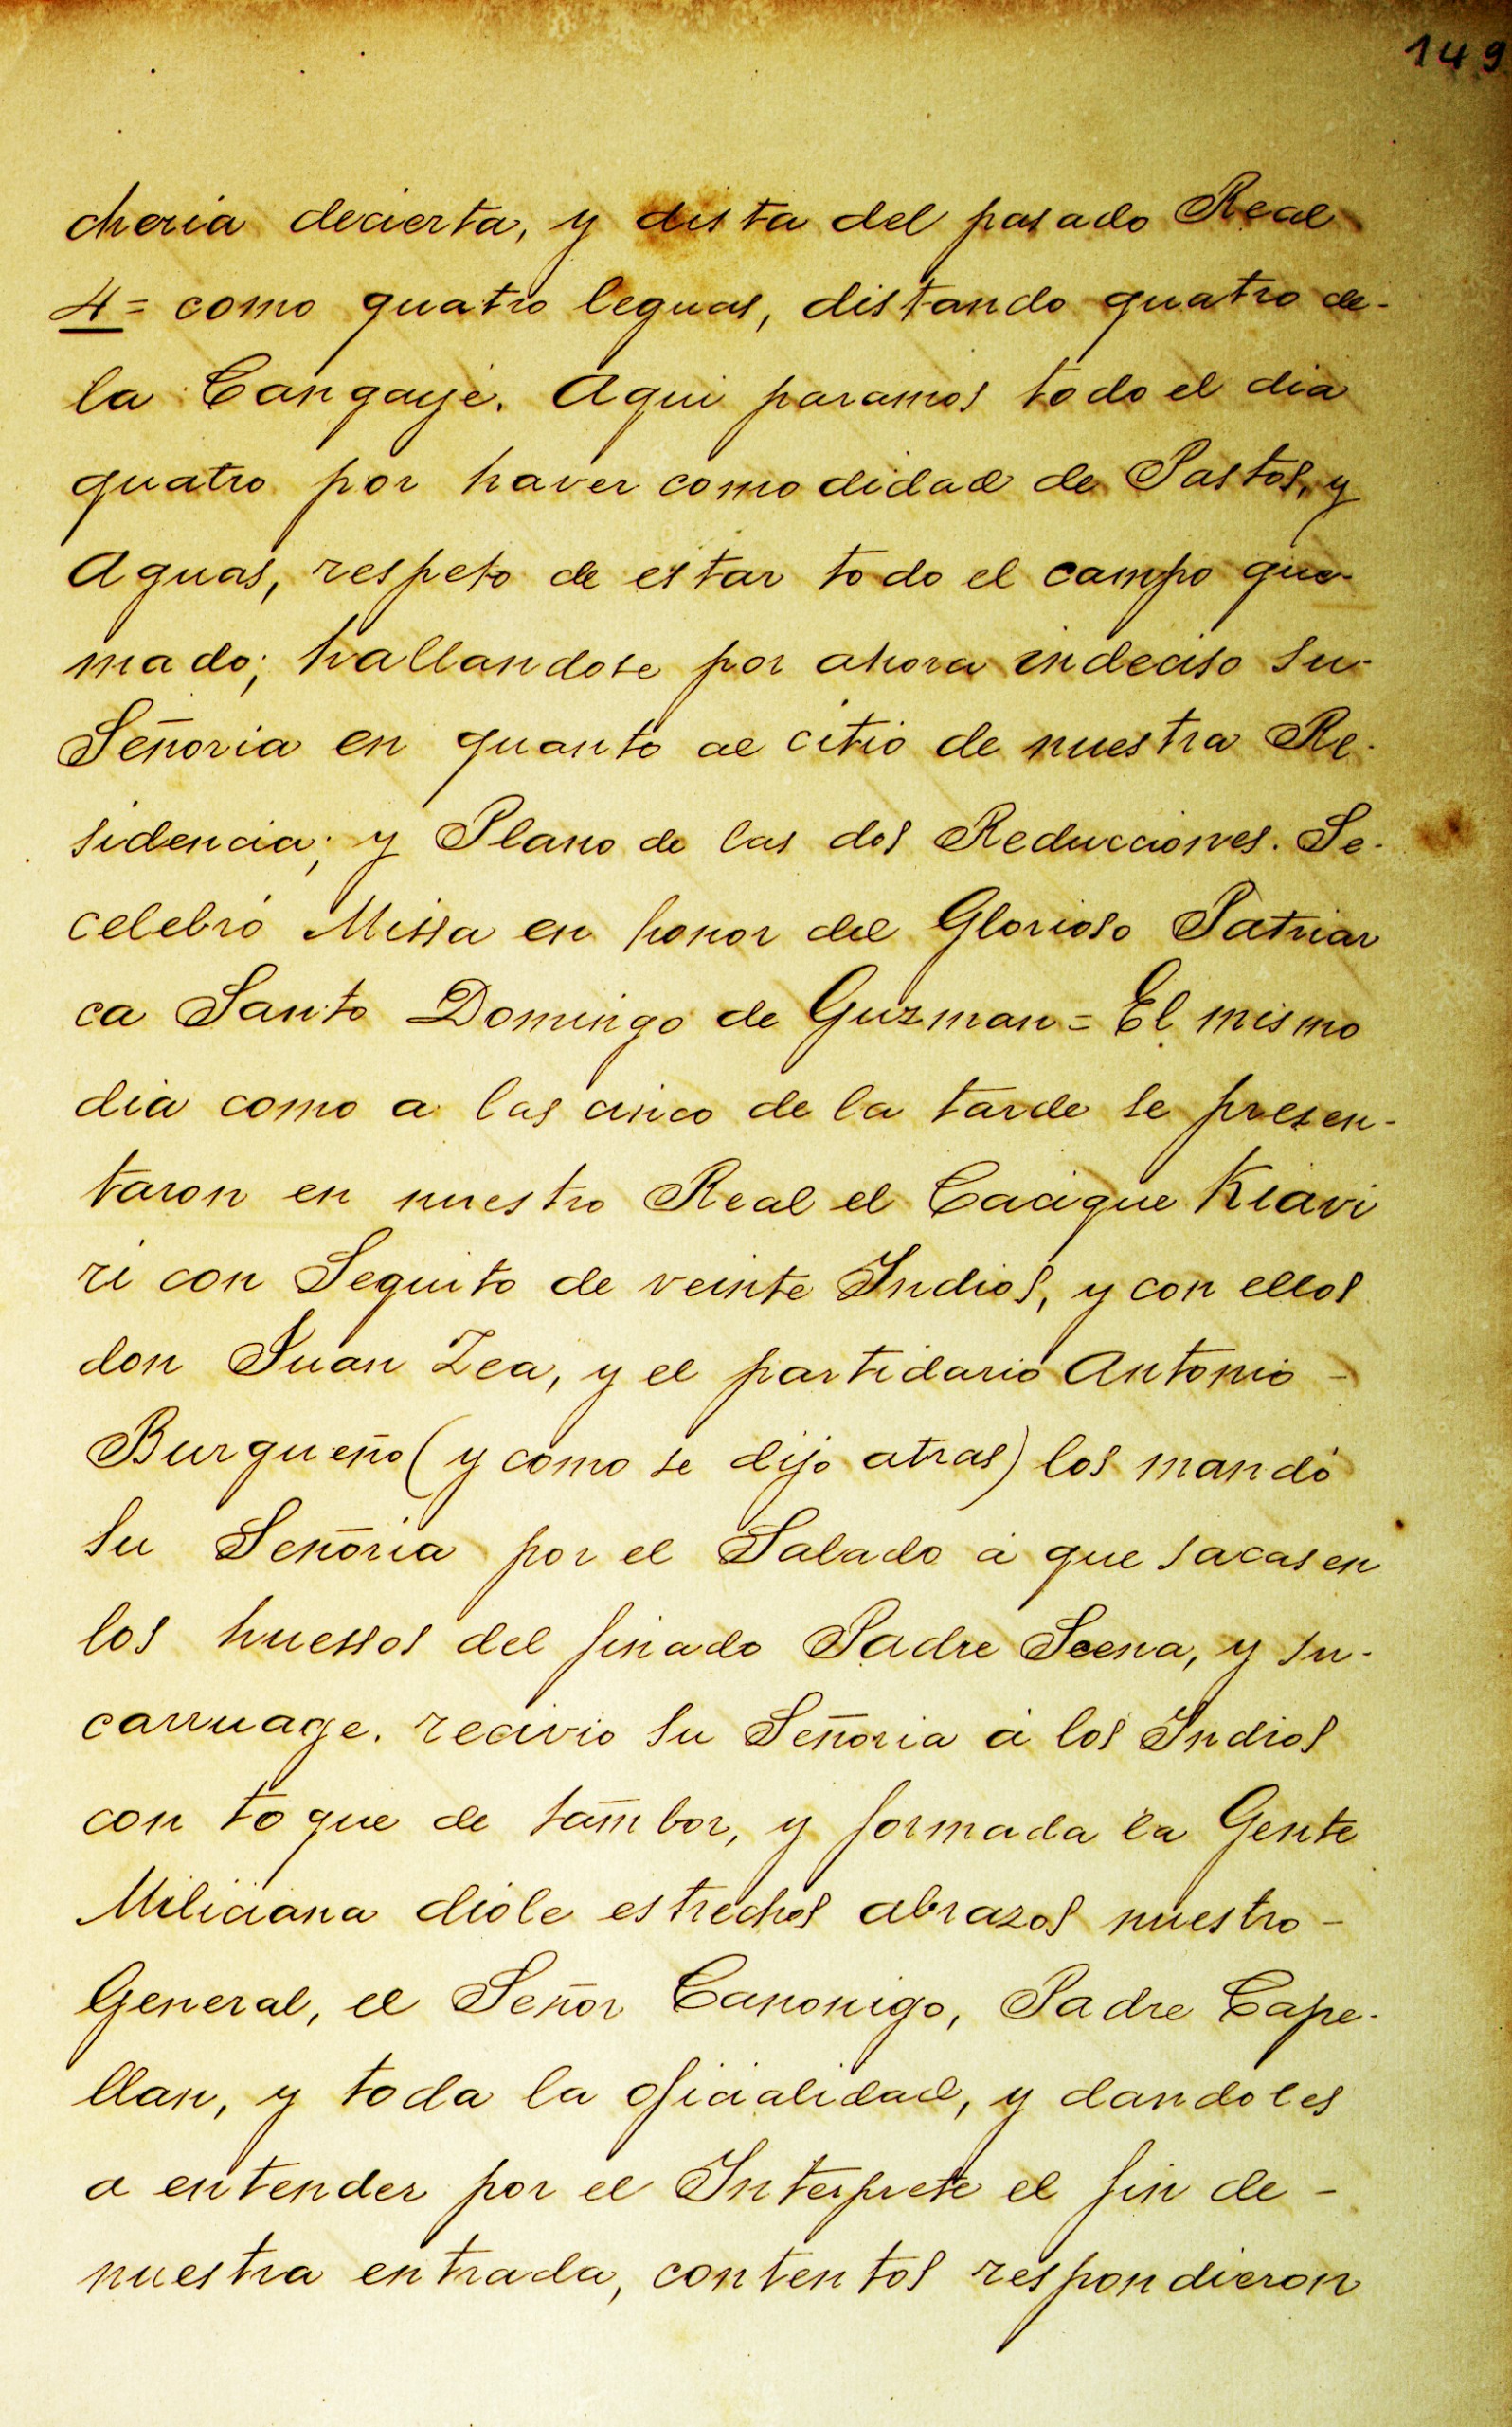 149
cheria decierta, y dista del pasado Real
4 = como quatro leguas, distando quatro de-
la Cangayé. Aqui paramos todo el dia
quatro por haver comodidad de Pastos, y
Aguas, respeto de estar todo el campo que-
mado; hallandose por ahora indeciso su-
Señoria en quanto al citio de nuestra Re-
sidencia; y Plano de las dos Reducciones. Se-
celebró Missa en honor del Glorioso Patriar
ca Santo Domingo de Guzman = El mismo
dia como a las cinco de la tarde se presen-
taron en nuestro Real el Cacique Kiavi
ri con Seguito de veinte Indios, y con ellos
don Juan Zea, y el partidario Antonio -
Burgueño (y como se dijo atras) los mandó
su Señoria por el Salado á que sacasen
los huessos del finado Padre Scena, y su-
carruage. recivio su Señoria á los Indios
con toque de tambor, y formada la Gente
Miliciana diole estrechos abrazos nuestro -
General, el Señor Canonigo, Padre Cape-
llan, y toda la oficialidad, y dandoles
a entender por el Interprete el fin de -
nuestra entrada, contentos respondieron